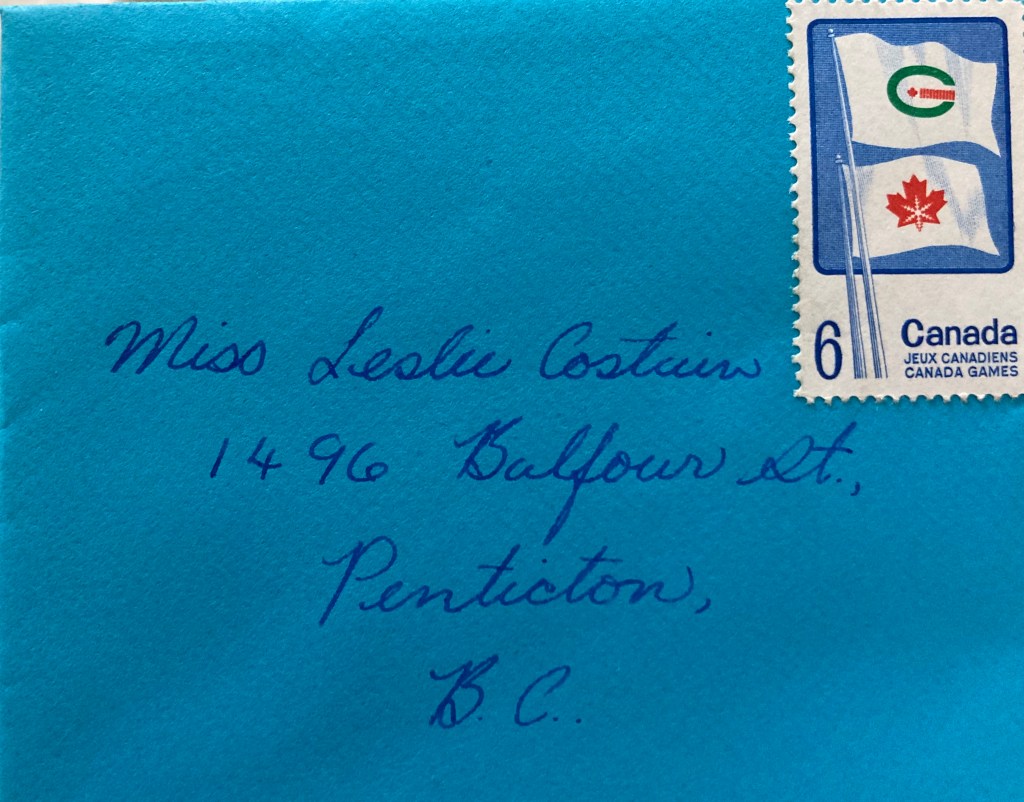 6 Canada
JEUX CANADIENS
CANADA GAMES
Miss Leslie Costain
1496 Balfour St.,
Penticton,
B.C..